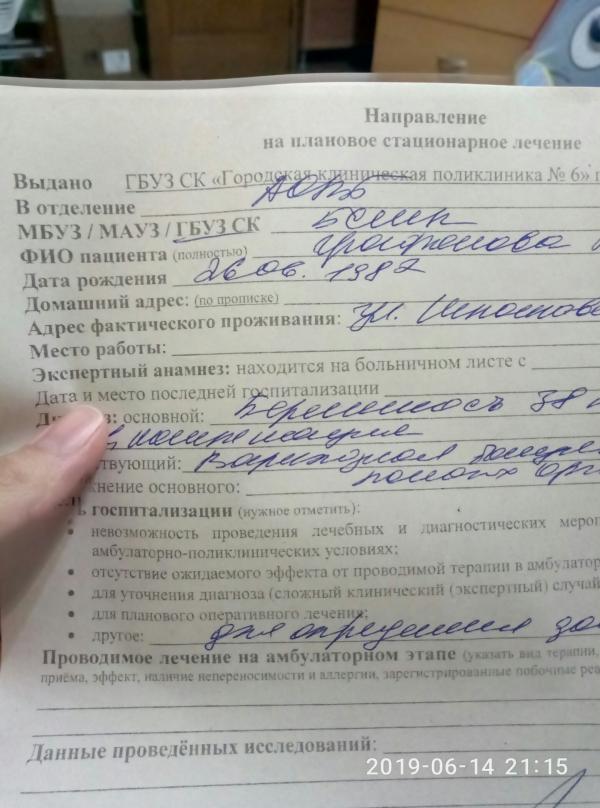 Направление
на плановое стационарное лечение
Выдано ГБУЗ СК «Городская клиническая поликлиника № 6» г
В отделение АОПБ
МБУЗ / МАУЗ / ГБУЗ СК
ФИО пациента (полностью)
Дата рождения 26.06. 1987
Домашний адрес: (по прописке)
Адрес фактического проживания: ул.
Место работы:
Экспертный анамнез: находится на больничном листе с
Дата и место последней госпитализации
основной: Беременность 38 н
ствующий: Варикозная
жнение основного:
ь госпитализации (нужное отметить):
• невозможность проведения лечебных и диагностических мероп
амбулаторно-поликлинических условиях;
• отсутствие ожидаемого эффекта от проводимой терапии в амбулатор
• для уточнения диагноза (сложный клинический (экспертный) случай
• для планового оперативного лечения;
• другое: для определения
Проводимое лечение на амбулаторном этапе (указать вид терапии,
приёма, эффект, наличие непереносимости и аллергии, зарегистрированные побочные реа
Данные проведённых исследований:
2019-06-14 21:15